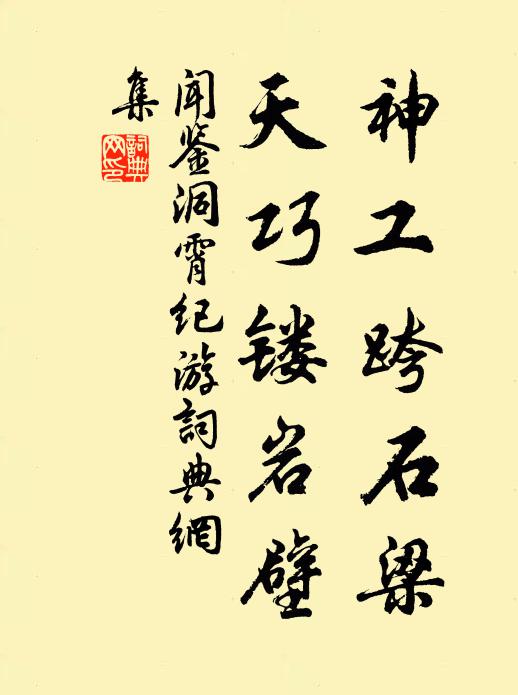 神工跨石梁
天巧镂岩壁
闻鉴洞霄纪游詞典網
集
詞典
网印